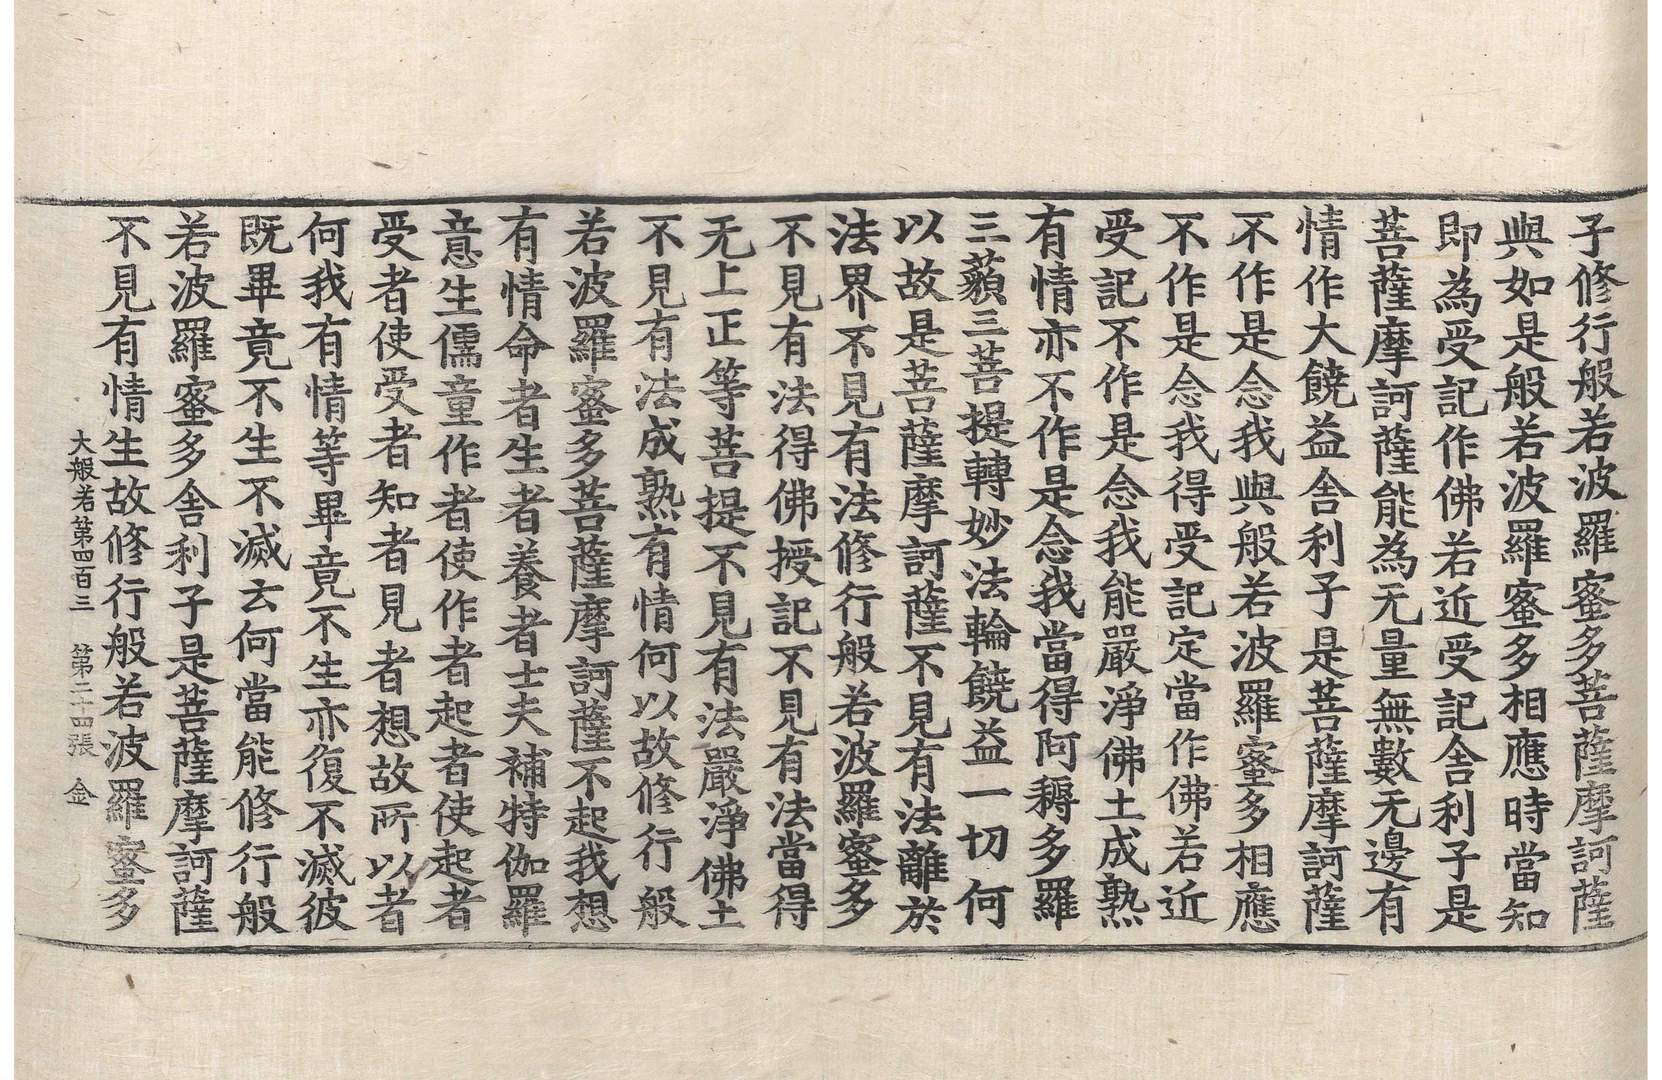 子修行般若波羅蜜多菩薩摩訶薩
與如是般若波羅蜜多相應時當知
即為受記作佛若近受記舍利子是
菩薩摩訶薩能為无量無數无邊有
情作大饒益舍利子是菩薩摩訶薩
不作是念我與般若波羅蜜多相應
不作是念我得受記定當作佛若近
受記不作是念我能嚴淨佛土成熟
有情亦不作是念我當得阿耨多羅
三藐三菩提轉妙法輪饒益一切何
以故是菩薩摩訶薩不見有法離於
法界不見有法修行般若波羅蜜多
不見有法得佛授記不見有法當得
无上正等菩提不見有法嚴淨佛土
不見有法成熟有情何以故修行般
若波羅蜜多菩薩摩訶薩不起我想
有情命者生者養者士夫補特伽羅
意生儒童作者使作者起者使起者
受者使受者知者見者想故所以者
何我有情等畢竟不生亦復不滅彼
既畢竟不生不滅云何當能修行般
若波羅蜜多舍利子是菩薩摩訶薩
不見有情生故修行般若波羅蜜多
大般若第四百三 第二十四張 金